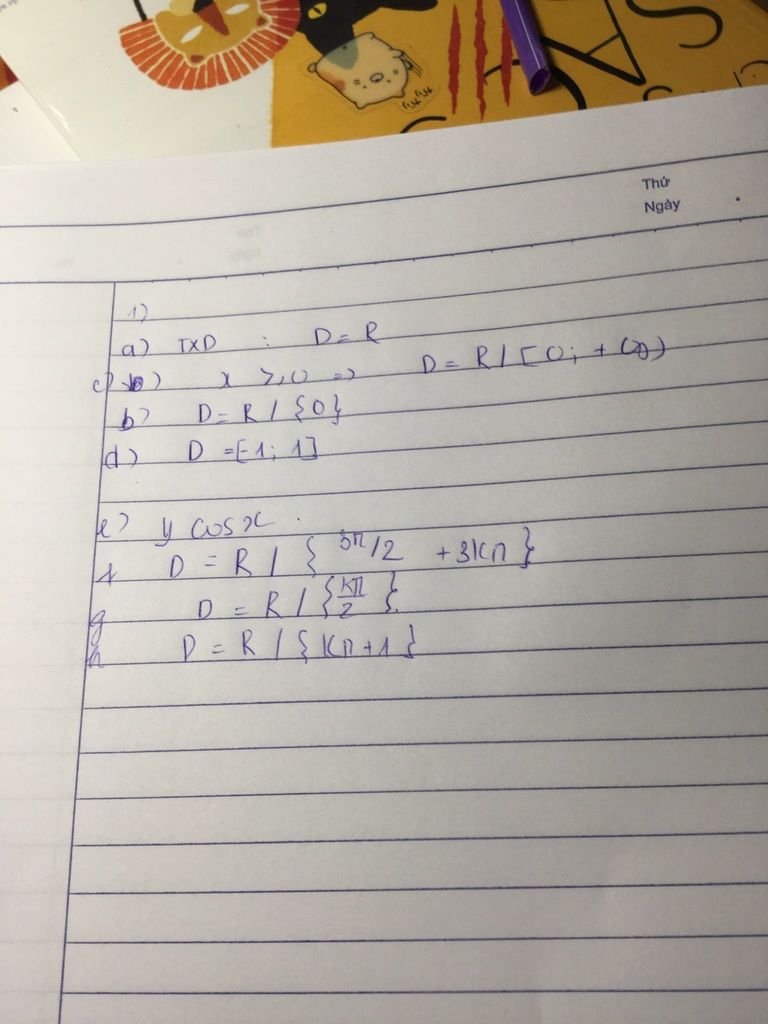 Thứ
Ngày
1)
a) TXD : D = R
c) x ⩾ 0 => D = R / [0; +∞)
b) D = R / {0}
d) D = [-1; 1]
e) y cos x.
f D = R / { 5π/2 + 3kπ }
g D = R / {kπ/2}.
h D = R / {kπ+1}